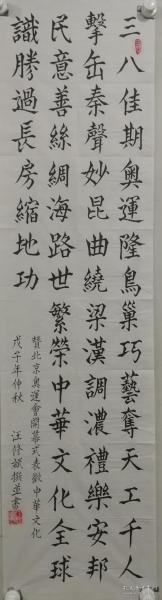 三八佳期奧運隆鳥巢巧藝奪天工千人
擊缶秦聲妙昆曲繞梁漢調濃禮樂安邦
民意善絲綢海路世繁榮中華文化全球
識勝過長房縮地功
贊北京奧運會開幕式表徵中華文化
戊子年仲秋 汪修撰並書